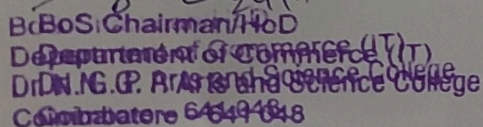 BoS Chairman/HoD
Department of Commerce (IT)
Dr. N. G. P. Arts and Science College
Coimbatore 641 048